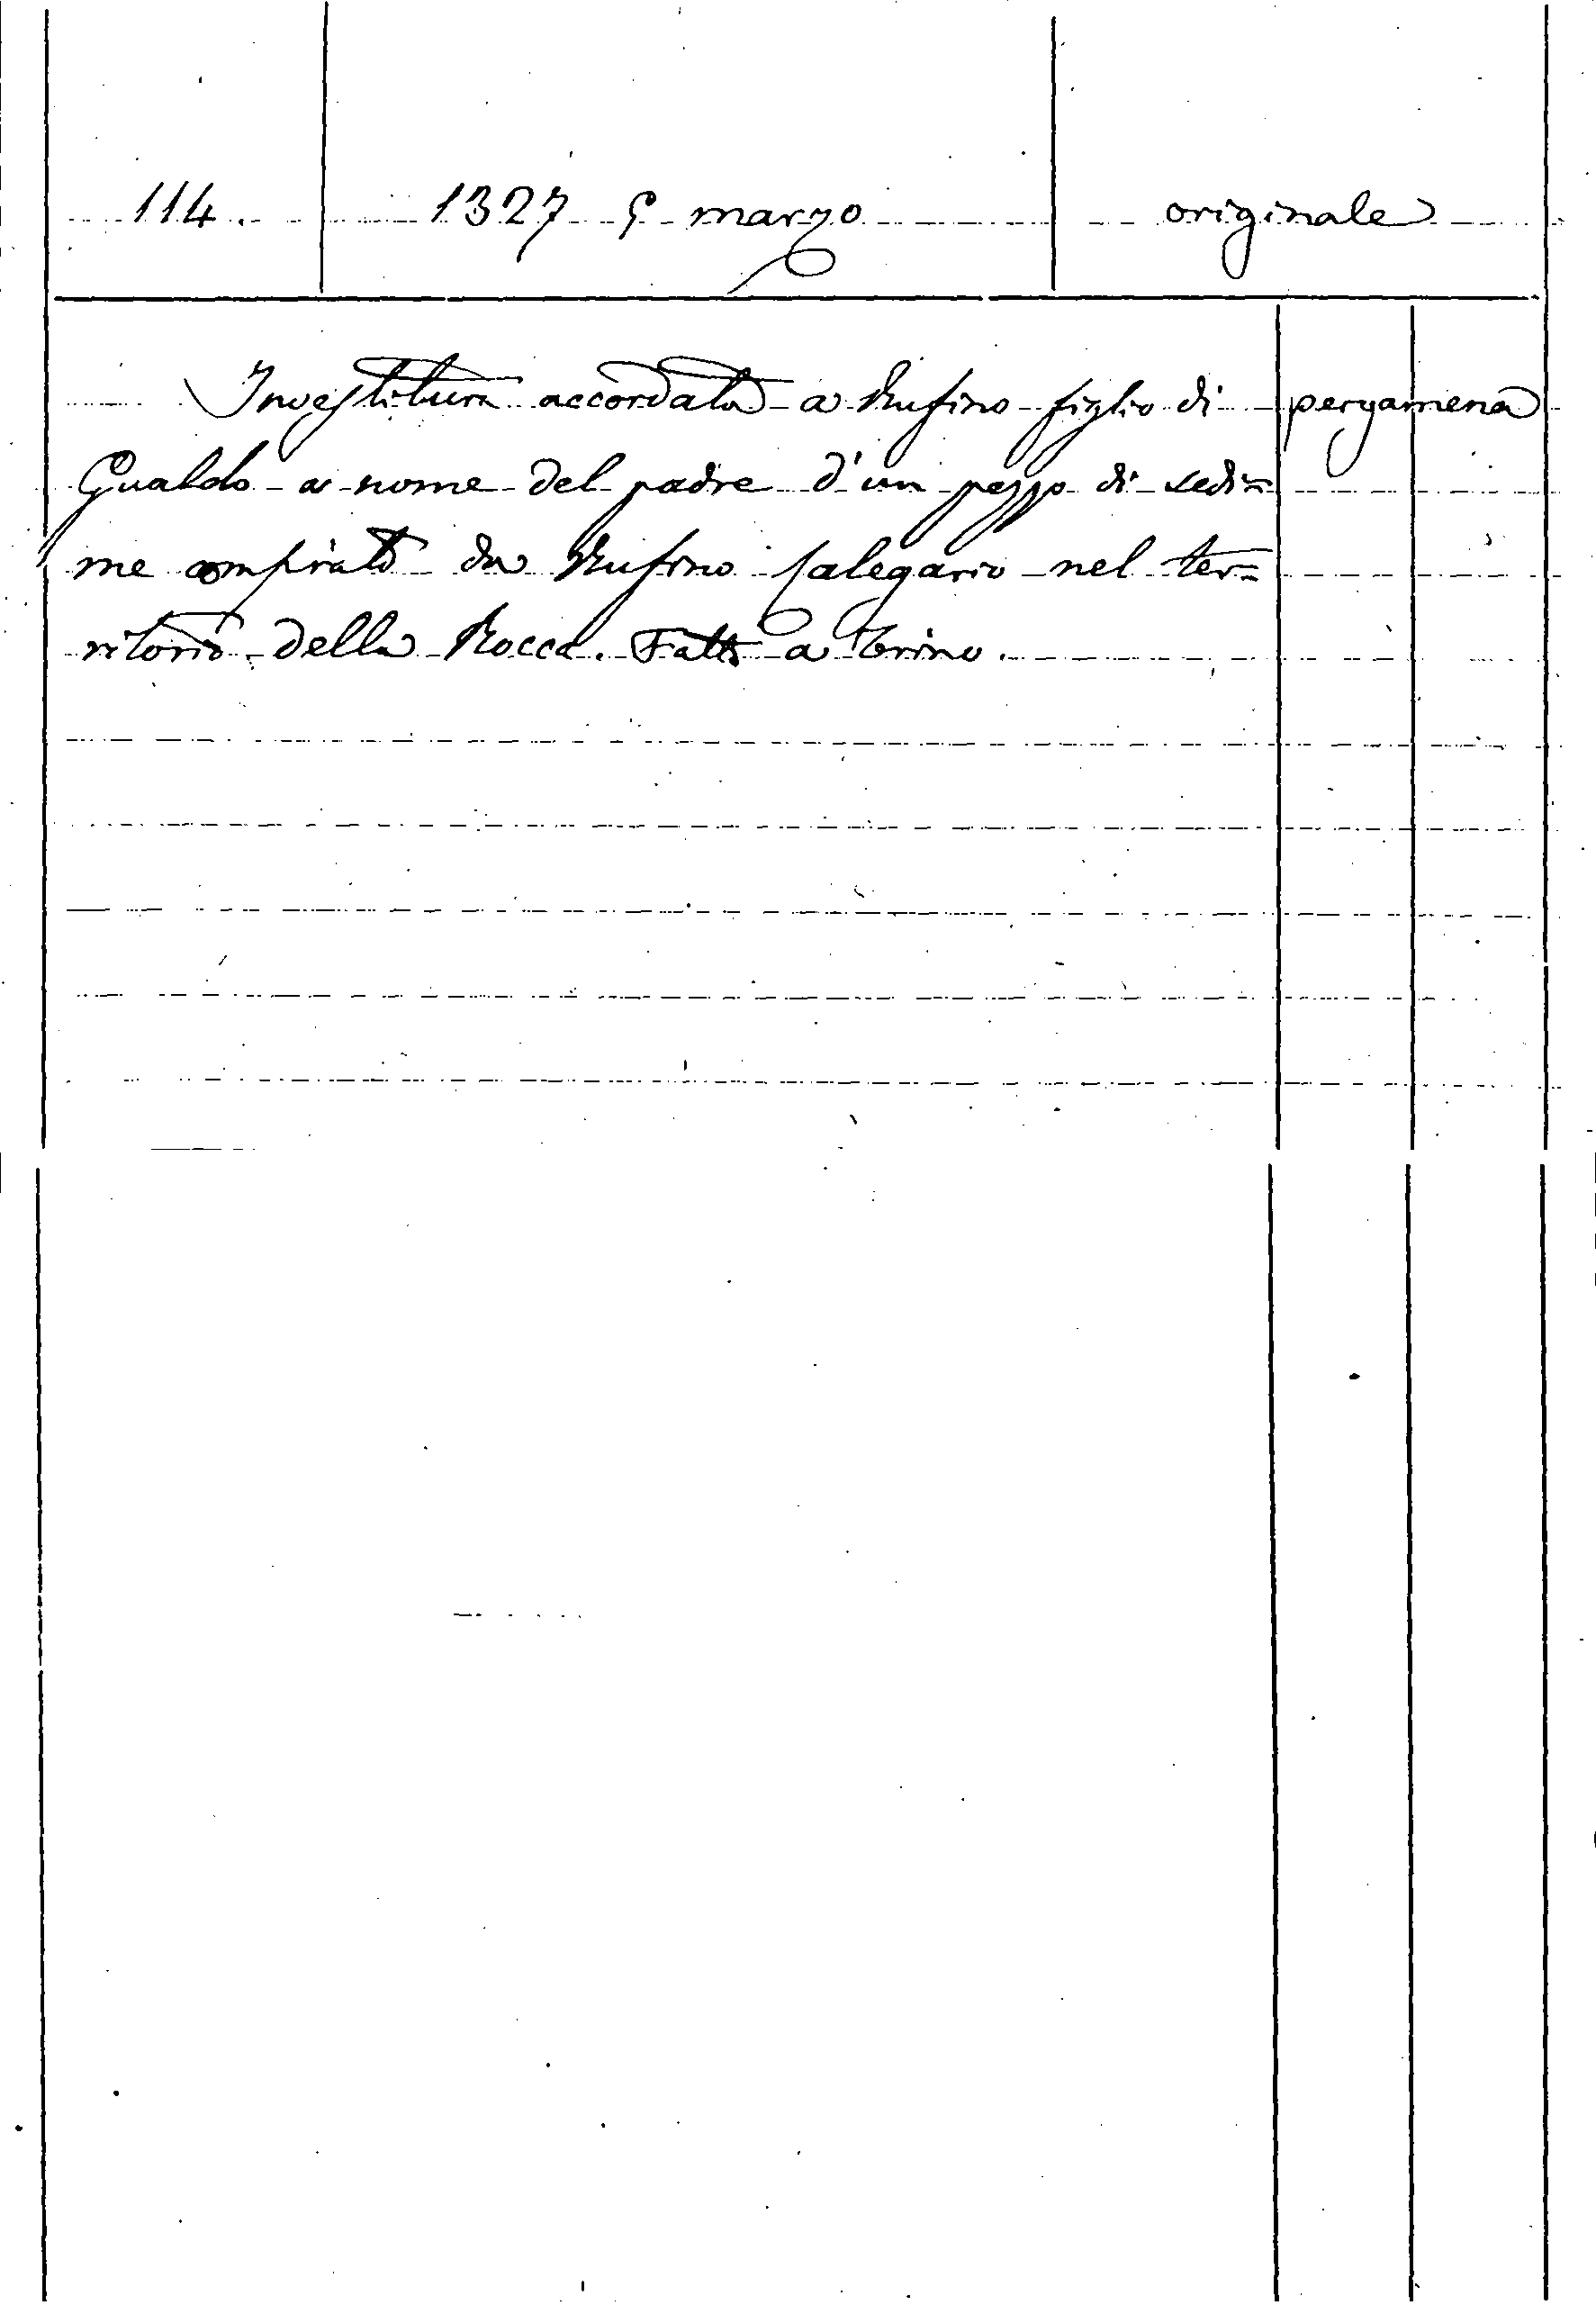 114. 1327 9 marzo originale
Investitura accordata a Rufino figlio di pergamena
Gualdo a nome del padre d'un pezzo di sedi=
me comprato da Rufino Calegario nel ter=
ritorio della Rocca. Fatta a Trino.